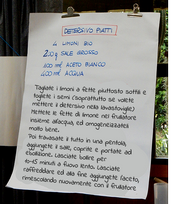 DETERSIVO PIATTI
4 LIMONI BIO
200g SALE GROSSO
400 ml ACETO BIANCO
400 ml ACQUA
Tagliate i limoni a fette piuttosto sottili e
togliete i semi (soprattutto se volete
mettere il detersivo nella lavastoviglie)
Mettete le fette di limone nel frullatore
insieme all'acqua, ed omogeneizzateli
molto bene.
Poi travasate il tutto in una pentola,
aggiungete il sale, coprite e portate ad
ebollizione. Lasciate bollire per
10-15 minuti a fuoco lento. Lasciate
raffreddare ed alla fine aggiungete l'aceto,
rimescolando nuovamente con il frullatore